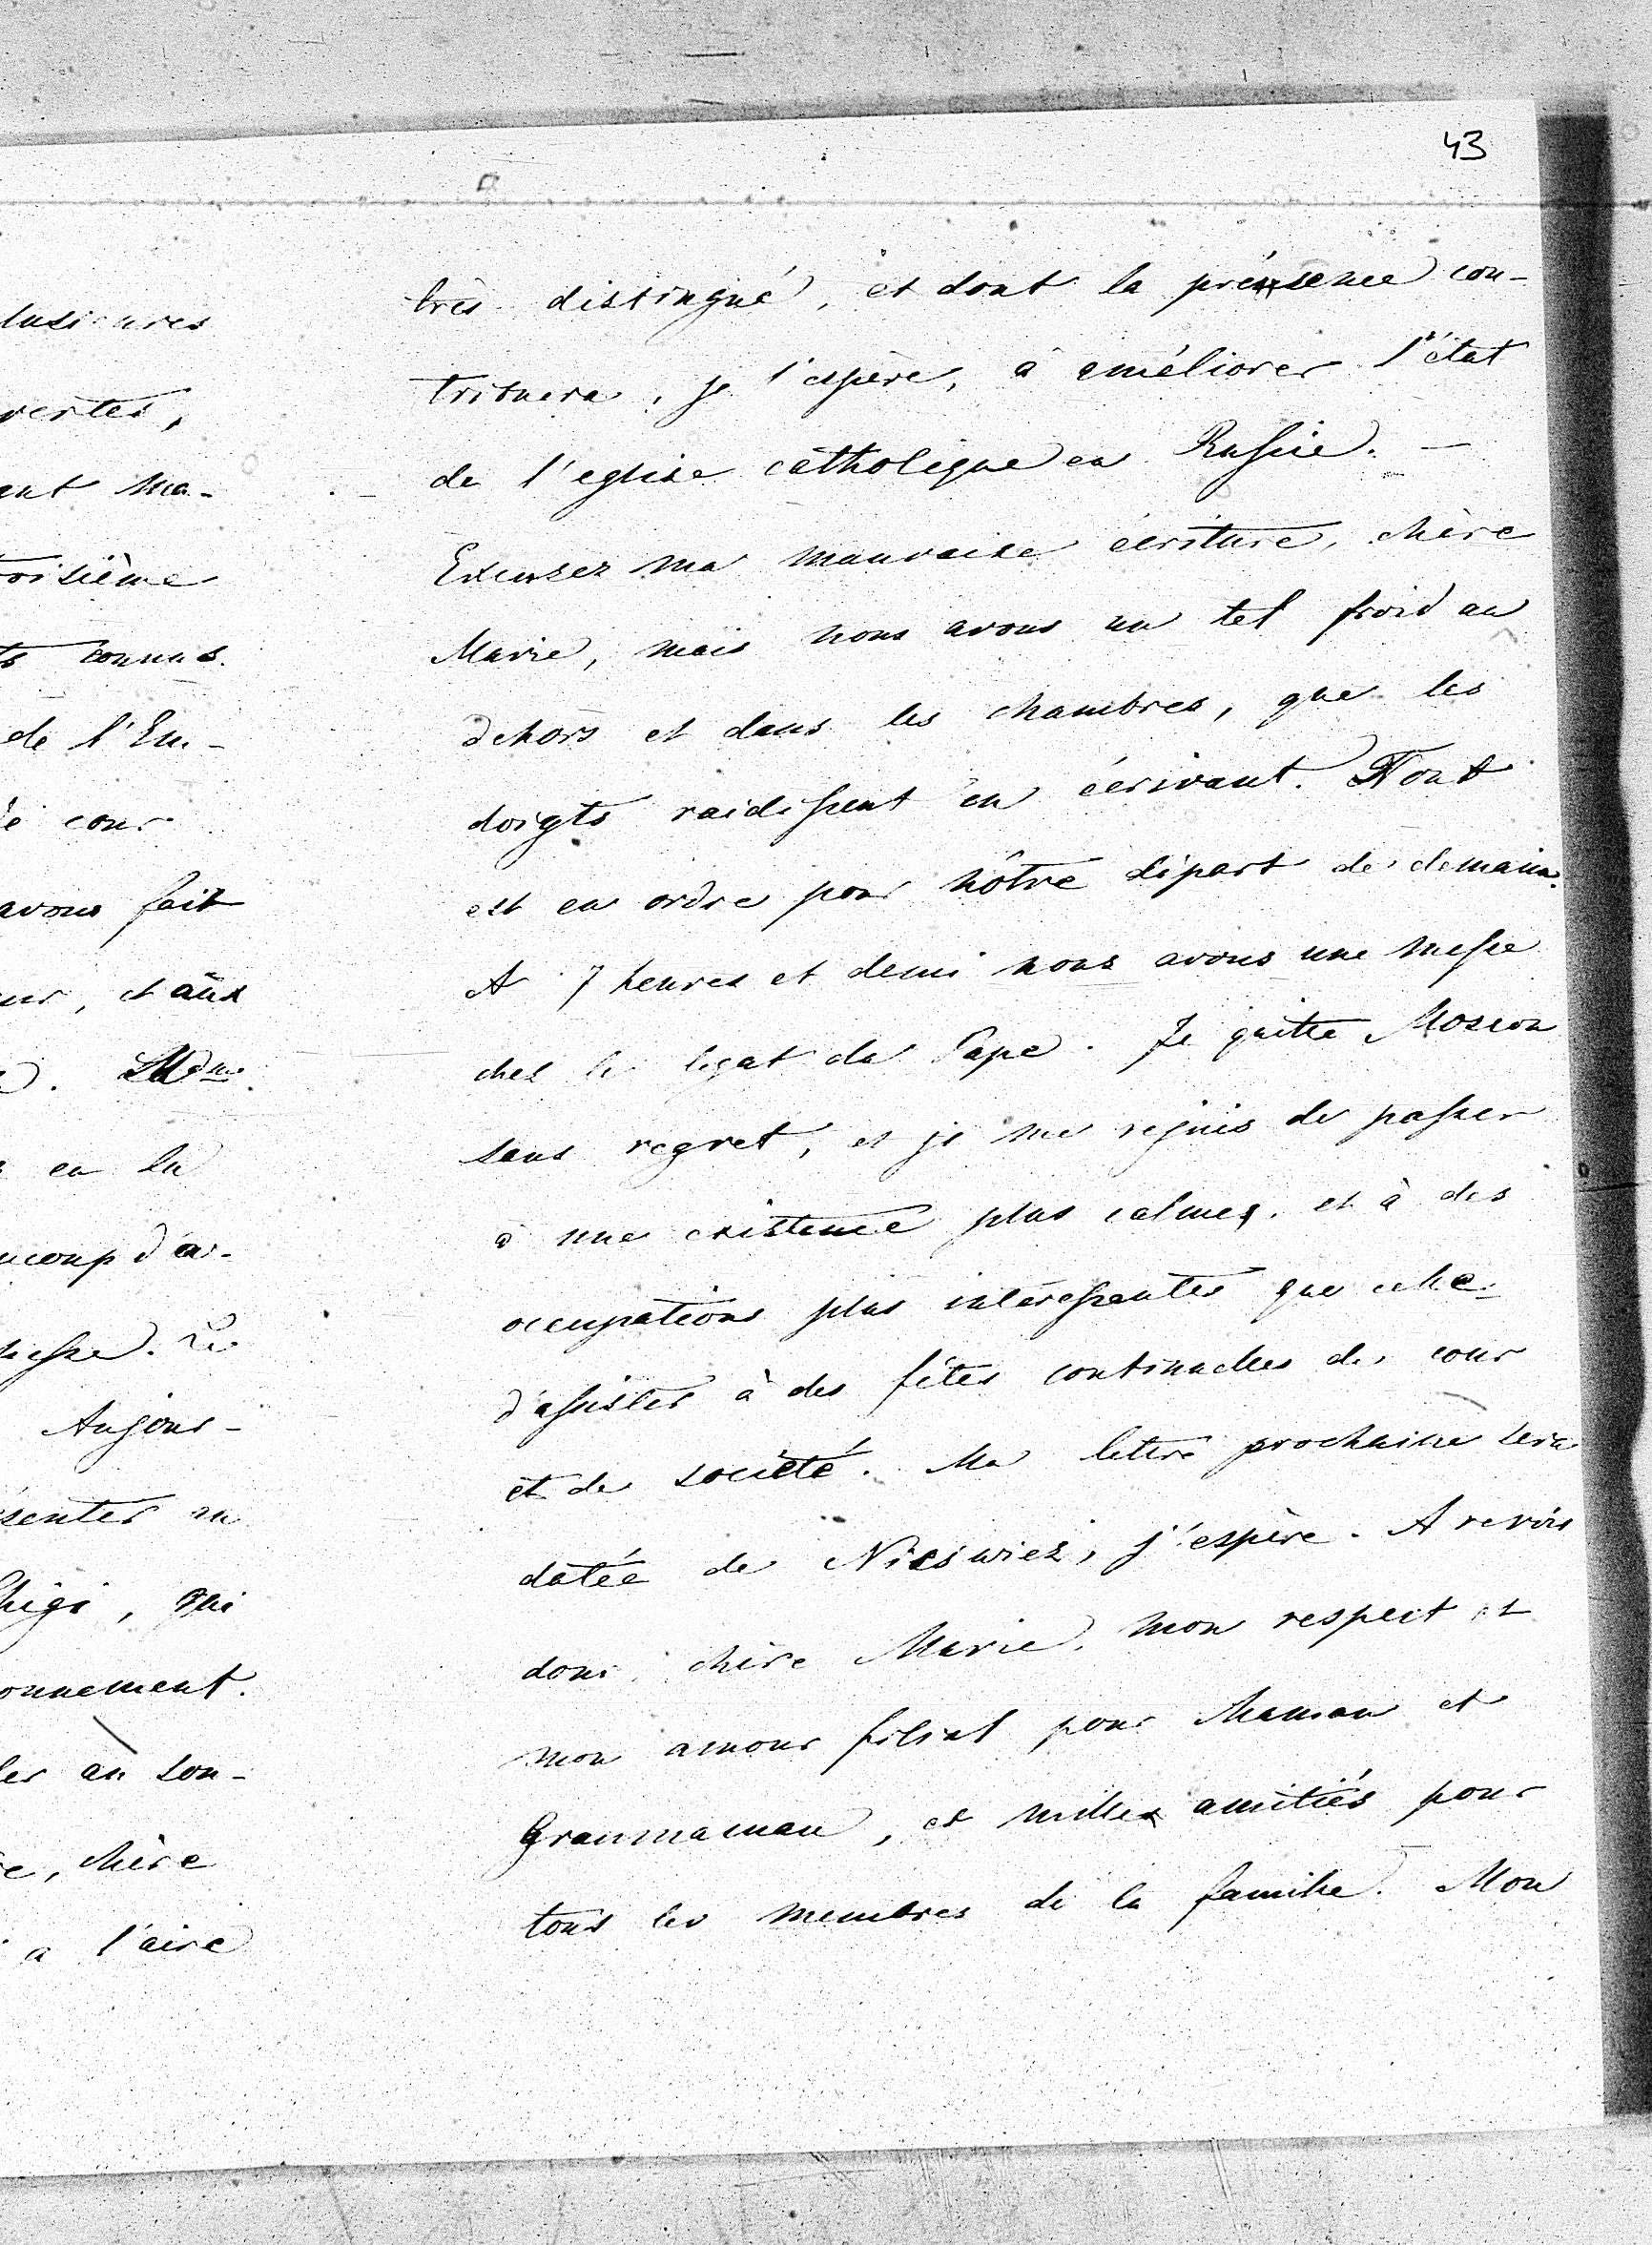 43
lusieures
vertes,
ent ma-
roisième
ts connus.
de l'Em-
cour
avons fait
ur, et aux
Mdme
en la
ucoup d'ar-
Le
Aujour-
ésenter au
higi, qui
onnement.
ler an son-
re, chère
a l'aire
très distingué, et dont la présence con-
tribuera, je l'espère, à améliorer l'état
de l'eglise catholique en Russie. —
Excusez ma mauvaise écriture, chère
Marie, mais nous avons un tel froid au
dehors et dans les chambres, que les
doigts raidissent en écrivant. Tout
est en ordre pour nôtre départ de demain.
A 7 heures et demi nous avons une messe
chez le legat du Pape. Je quitte Moscou
sans regret, et je me rejuis de passer
à une existence plus calme, et à des
occupations plus intéressantes que celle
d'assister à des fêtes continuelles de cour
et de société. Ma lettre prochaine sera
datée de Nieswiez, j'espère. A revoir
donc, chère Marie, mon respect et
mon amour filial pour Maman et
Granmaman, et mille amitiés pour
tous les membres de la famille. Mon